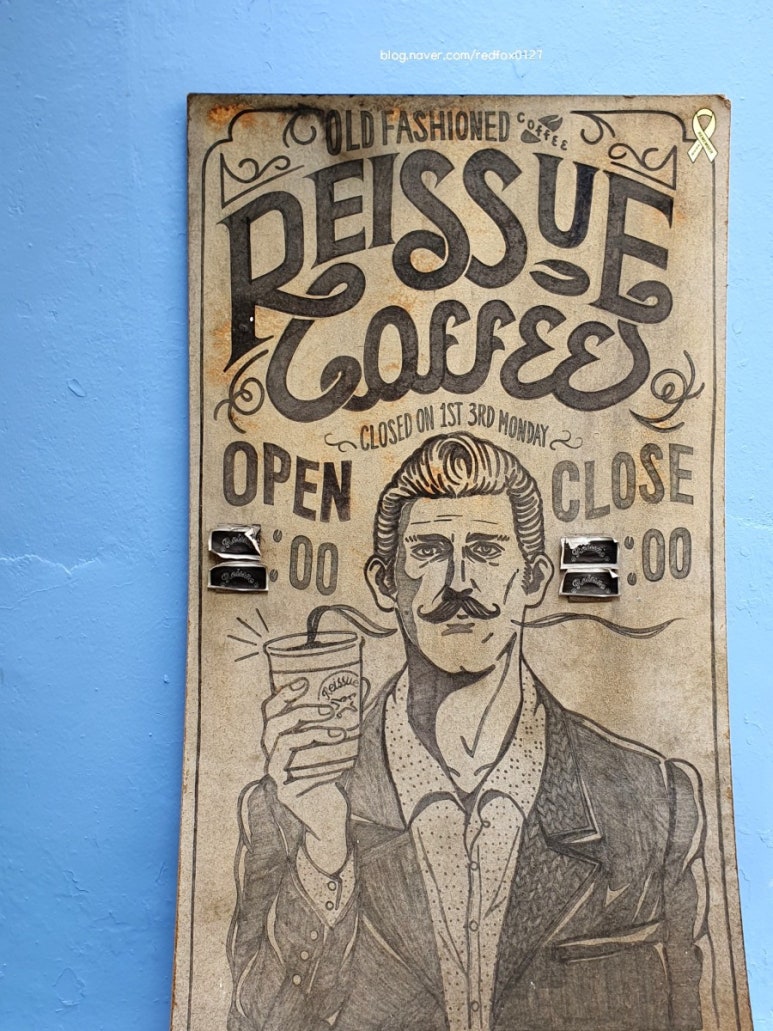 blog.naver.com/redfox0127
OLD FASHIONED COFFEE
REISSUE
COFFEE
CLOSED ON 1ST 3RD MONDAY
OPEN
CLOSE
:00
:00
Reissue